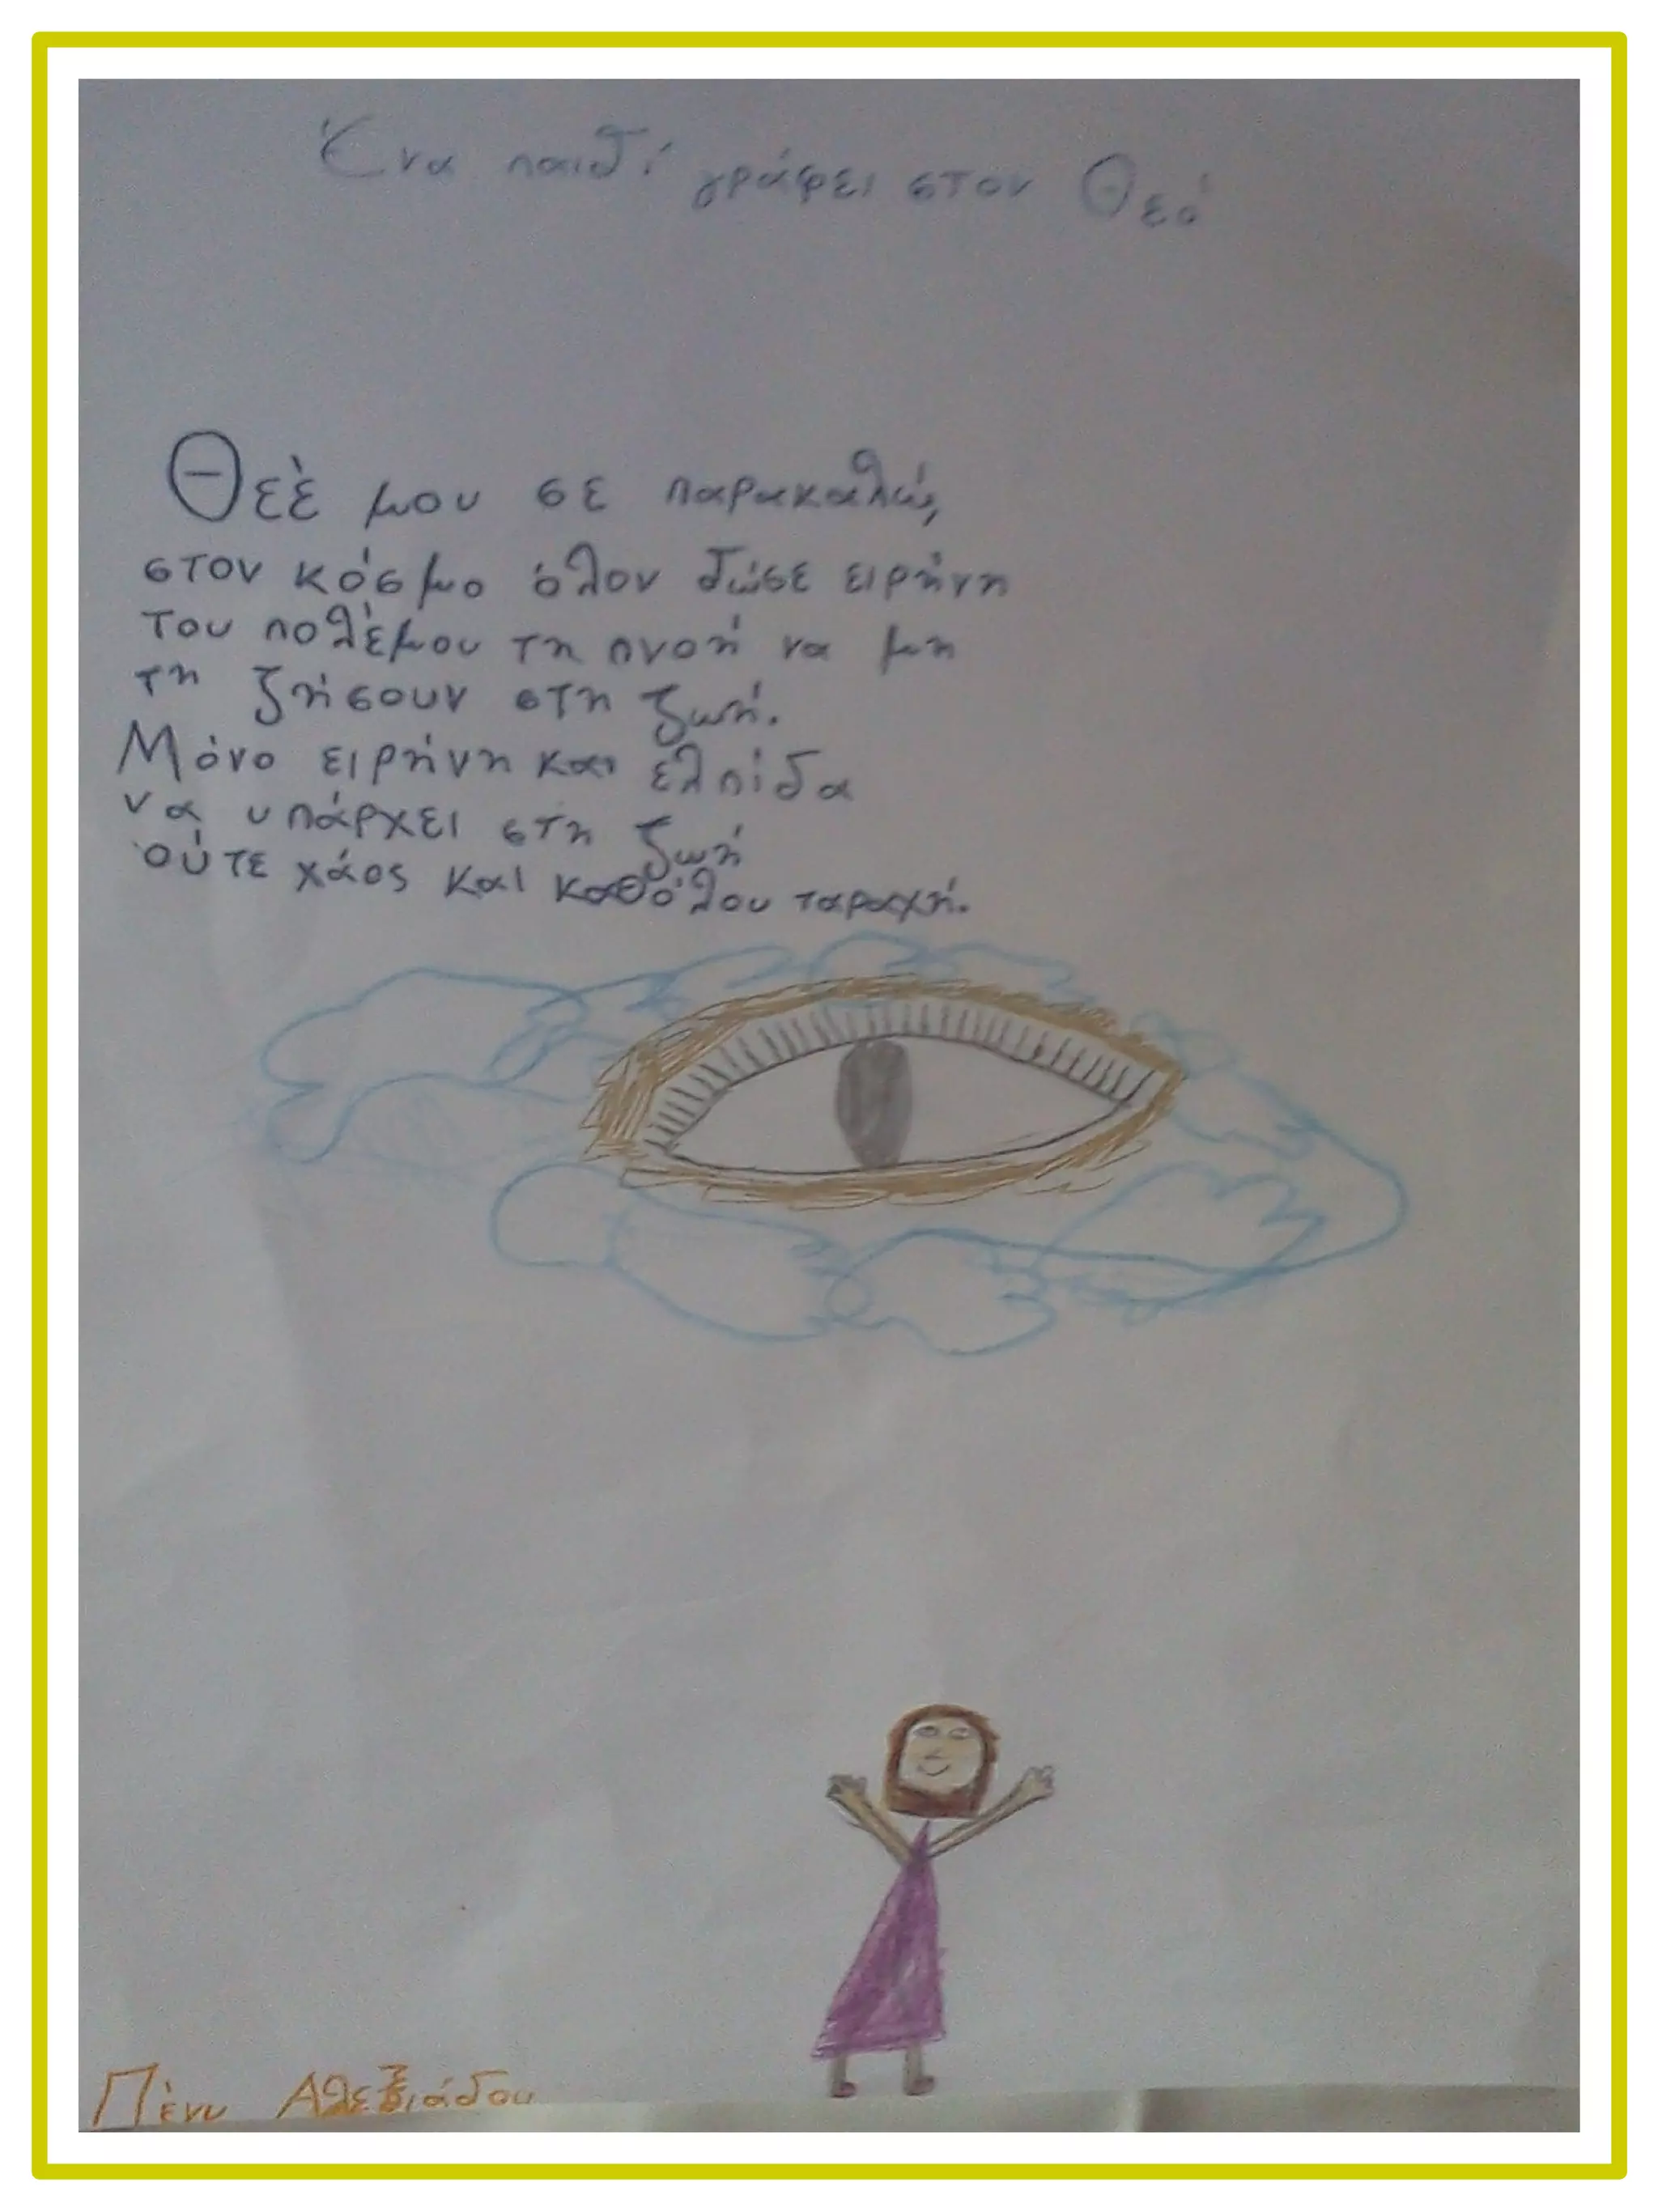 Ένα παιδί γράφει στον Θεό
Θεέ μου σε παρακαλώ,
στον κόσμο όλον δώσε ειρήνη
του πολέμου τη πνοή να μη
τη ζήσουν στη ζωή.
Μόνο ειρήνη και ελπίδα
να υπάρχει στη ζωή
ούτε χάος και καθόλου ταραχή.
Πένυ Αλεξιάδου